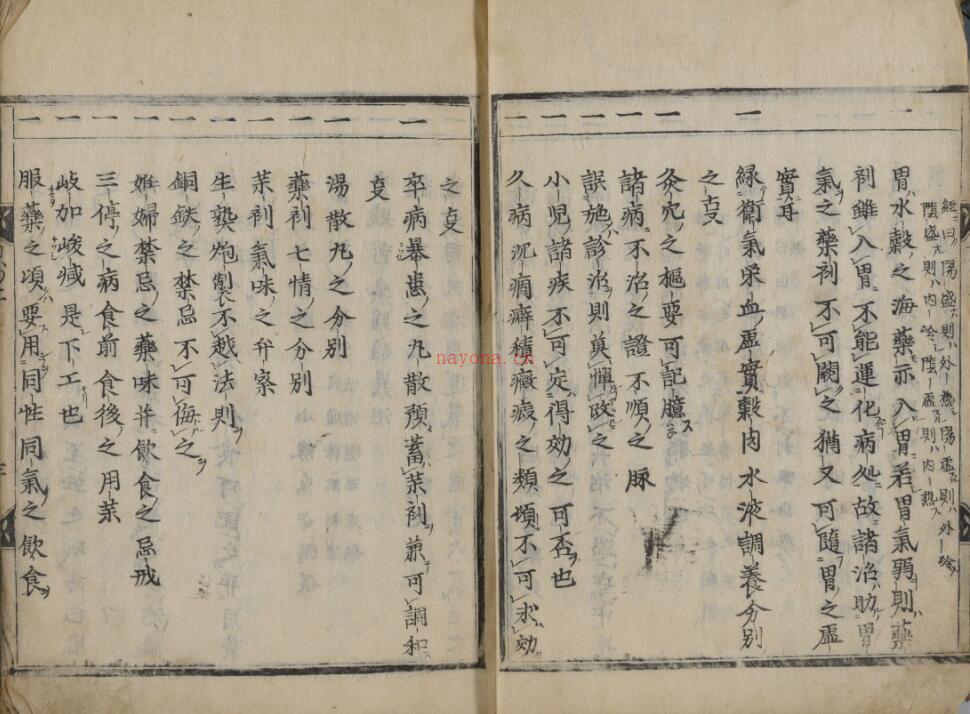 經曰陽盛則外熱陽虛則外冷
陰盛則內冷陰虛則內熱
一 胃水穀之海藥示入胃若胃氣弱則藥
剂雖入胃不能運化病処故諸治助胃
氣之藥剂不可闕之猶又可随胃之虛
實耳
一 緑衛氣栄血虛實穀肉水液調養分別
之支
一 灸穴之樞要可記臆
一 諸病不治之證不順之脉
一 誤施診治則莫憚改之
一 小児諸疾不可定得効之可否也
一 久病沉痼癖積癥瘕之類頓不可求効
之支
一 卒病暴患之九散預蓄薬剂兼可調和
支
一 湯散九之分別
一 藥剂七情之分別
一 茱剂氣味之弁察
一 生熟炮製不越法則
一 銅鉄之禁忌不可侮之
一 姙婦禁忌之藥味并飲食之忌戒
一 三停之病食前食後之用茱
一 岐加峻减是下工也
一 服藥之頃要用同性同氣之飲食
nayona.cn